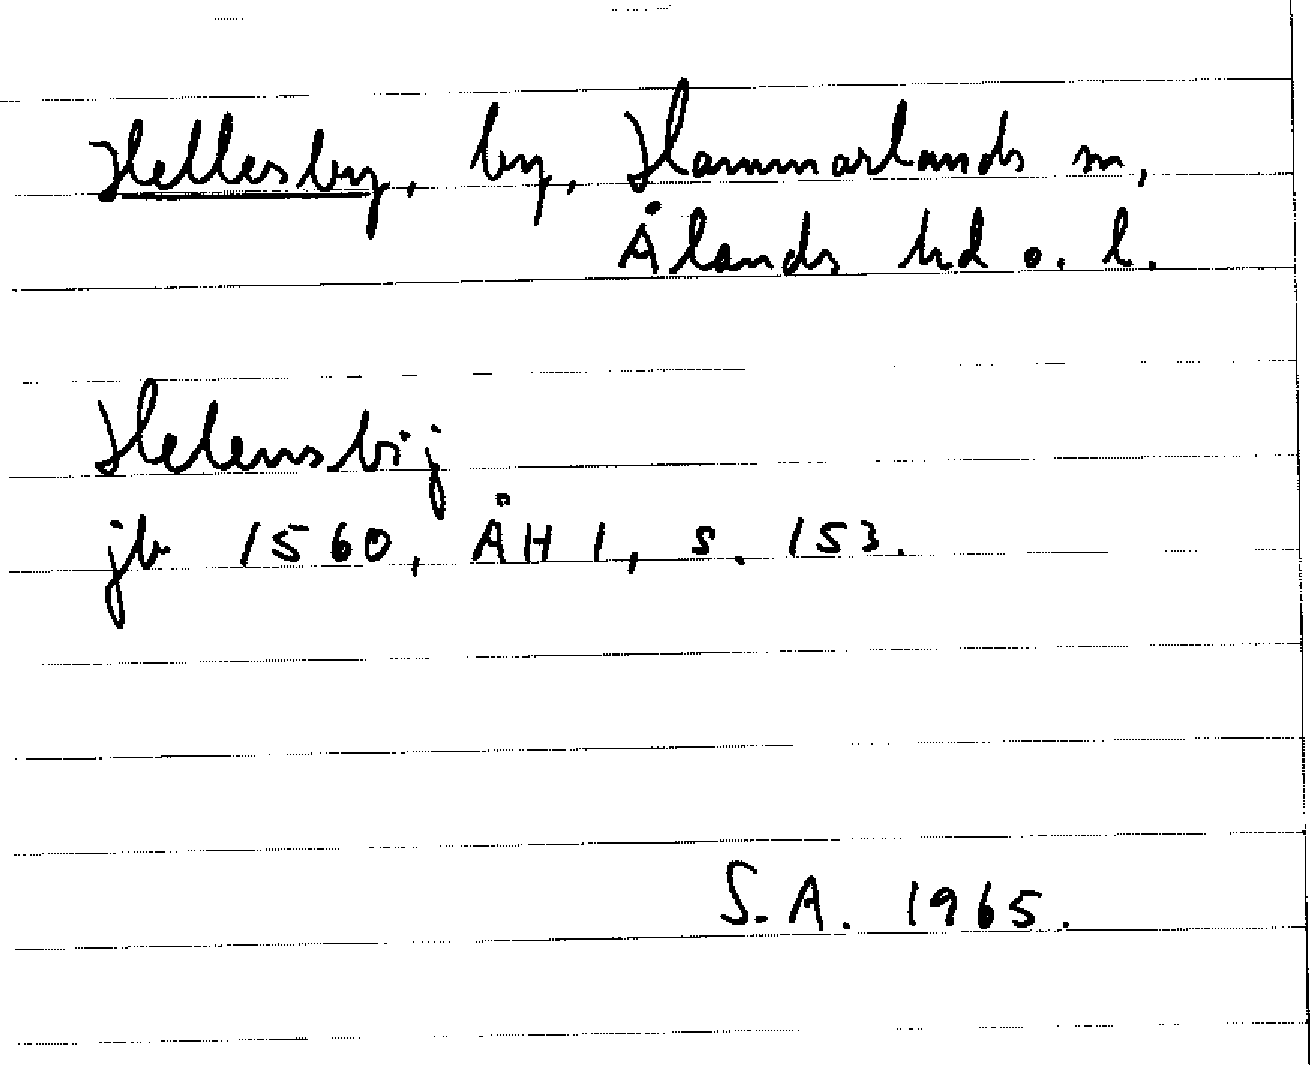 Hellesby, by, Hammarlands sn,
Ålands hd o. l.
Helensbij
jb 1560, ÅH 1, s. 153.
S.A. 1965.